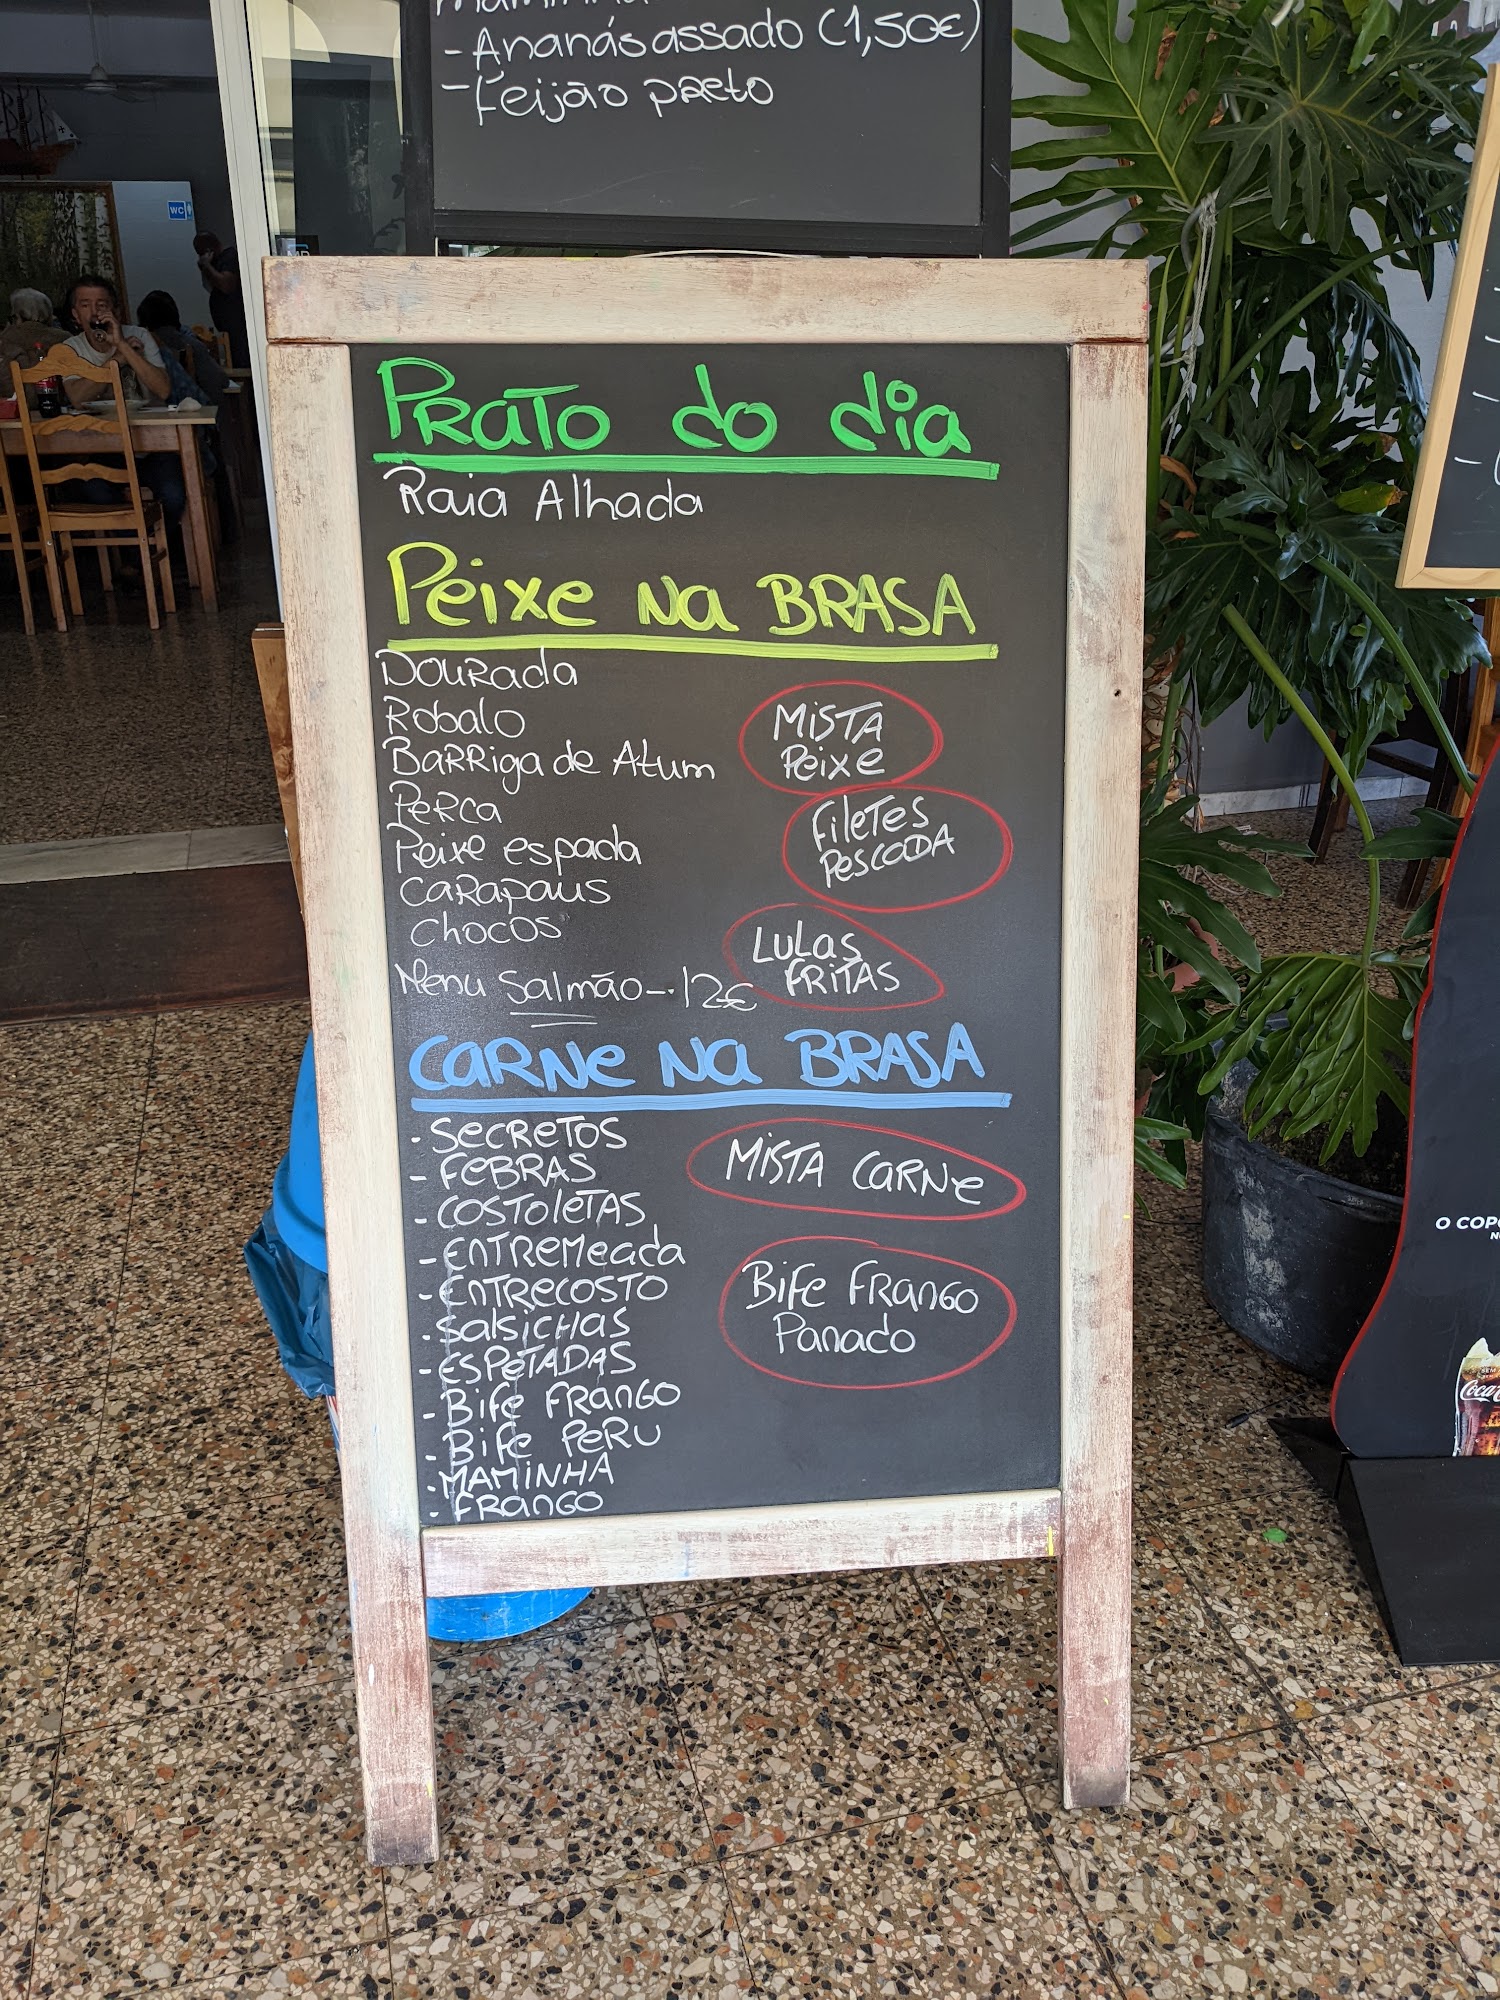 - Ananás assado (1,50€)
- Feijão preto
WC
Prato do dia
Raia Alhada
Peixe na BRASA
Dourada
Robalo
Barriga de Atum
Perca
Peixe espada
Carapaus
Chocos
Menu Salmão - 12€
Mista
Peixe
Filetes
Pescada
Lulas
Fritas
Carne na BRASA
- Secretos
- Febras
- Costoletas
- Entremeada
- Entrecosto
- Salsichas
- Espetadas
- Bife Frango
- Bife Peru
- Maminha
- Frango
Mista Carne
Bife Frango
Panado
O COP